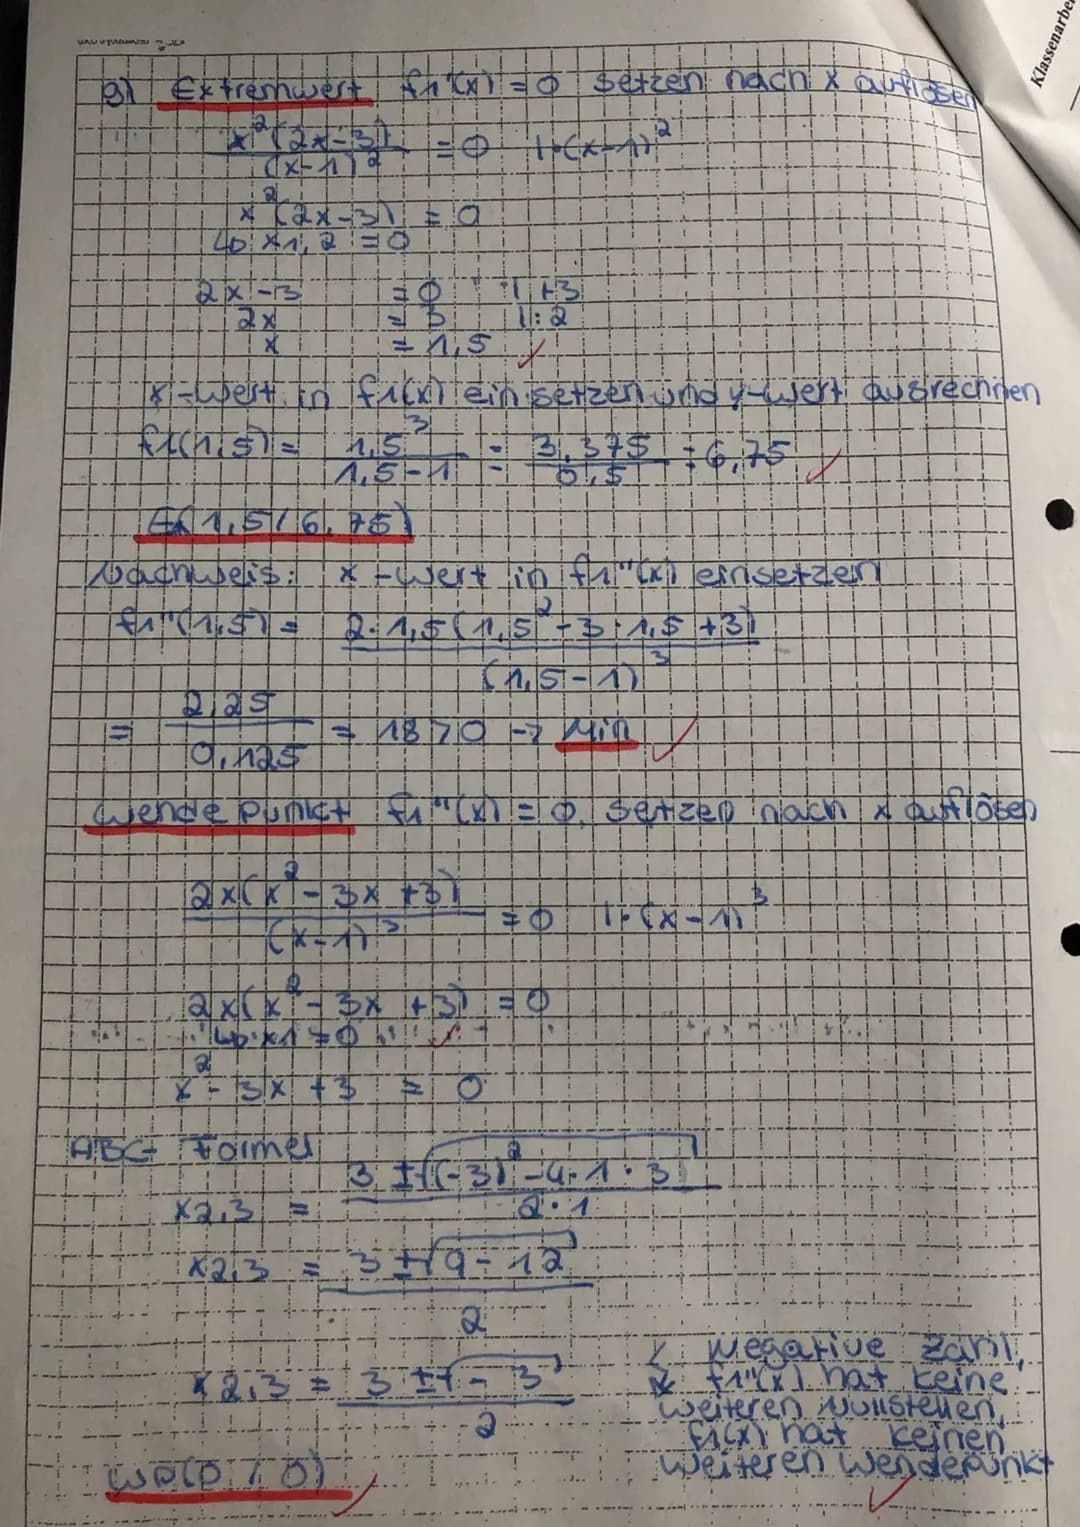 g) Extremwert f1'(x) = 0 setzen nach x auflösen
x²(2x-3) / (x-1)² = 0 |·(x-1)²
x²(2x-3) = 0
↳ x1,2 = 0
2x-3 = 0 | +3
2x = 3 | :2
x = 1,5 ✓
x-Wert in f1(x) einsetzen und y-Wert ausrechnen
f1(1,5) = 1,5³ / 1,5-1 = 3,375 / 0,5 = 6,75 ✓
E(1,5/6,75)
Nachweis: x-Wert in f1"(x) einsetzen
f1"(1,5) = 2·1,5(1,5²-3·1,5+3) / (1,5-1)³
= 2,25 / 0,125 = 18 > 0 → Min ✓
Wendepunkt f1"(x) = 0 setzen nach x auflösen
2x(x²-3x+3) / (x-1)³ = 0 |·(x-1)³
2x(x²-3x+3) = 0
↳ x1 = 0 ✓
x²-3x+3 = 0
ABC Formel
x2,3 = 3 ± √((-3)²-4·1·3) / 2·1
x2,3 = 3 ± √(9-12) / 2
x2,3 = 3 ± √(-3) / 2
negative Zahl,
f1"(x) hat keine
weiteren Nullstellen,
f1(x) hat keinen
weiteren Wendepunkt ✓
WP(0/0) ✓
Klassenarbei